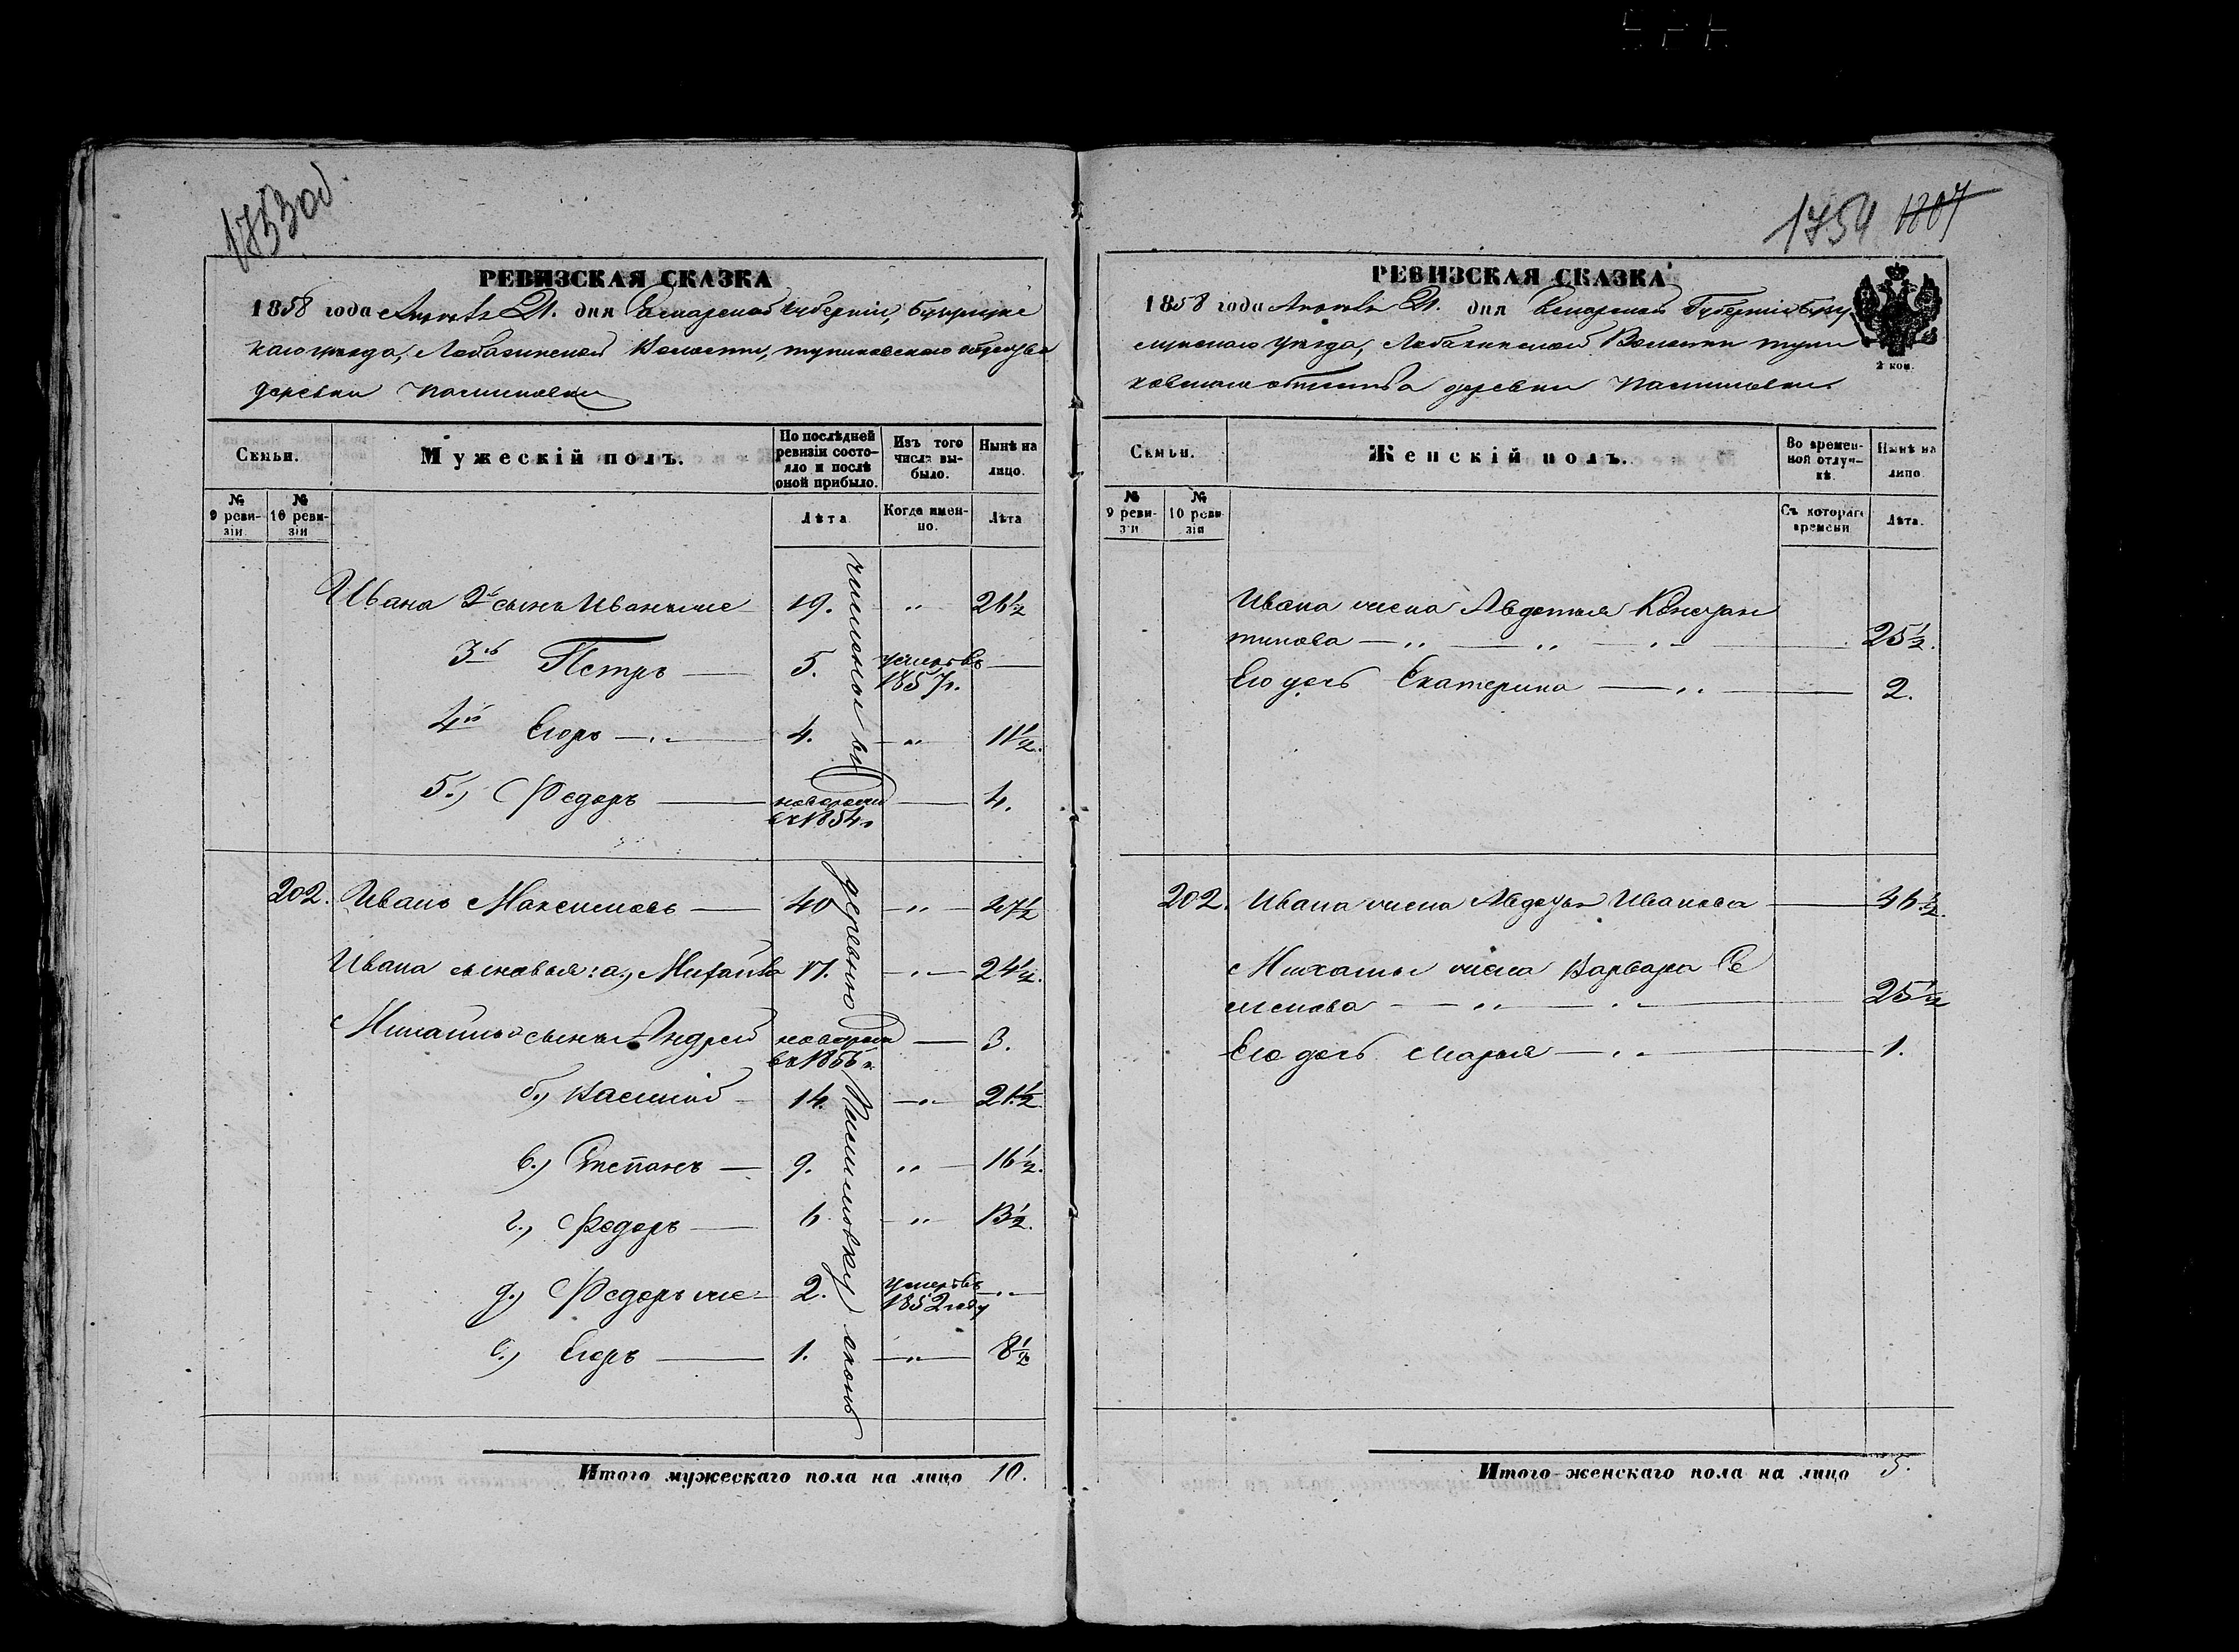 1753 об.
РЕВИЗСКАЯ СКАЗКА
1858 года Апреля 21. дня Самарской Губерніи, Бузулукс
каго уезда, Лобазинской Волости, тупиковского общества
деревни
Семьи.
Мужескій полъ.
По послѣдней ревизіи состояло и послѣ оной прибыло.
Изъ того числа выбыло.
Нынѣ на лицо.
№ 9 ревизіи
№ 10 ревизіи
Лѣта
Когда именно.
Лѣта
Ивана 2й сынъ Иванъ же 19. „ 26½
3й Петръ — 5. умеръ въ 1857 г. —
4й Егоръ — 4. — „ — 11½.
5й, Федоръ — новорожд въ 1854 г — 4.
202. Иванъ Максимовъ — 40 — „ — 47½
Ивана сыновья: а., Михайла 17. — „ — 24½.
Михайлы сынъ Андрей новорожд въ 1855 г. — 3.
б., Василій — 14. — „ — 21½.
в.) Степанъ — 9. „ — 16½.
г., Федоръ — 6 — „ — 13½.
д.) Федоръ же — 2. умеръ въ 1852 году — „ —
е.) Егоръ — 1. — „ — 8½
деревню
Итого мужескаго пола на лицо 10.
1754 1807
РЕВИЗСКАЯ СКАЗКА
1858 года Апреля 21. дня Самарской Губерніи Бузу
лукскаго уезда, Лобазинской Волости тупи
ковскаго общества деревни
2 коп.
Семьи.
Женскій полъ.
Во временной отлучкѣ.
Нынѣ на лицо
№ 9 ревизіи
№ 10 ревизіи
Съ котораго времени
Лѣта.
Ивана жена Авдотья Констан
тинова — „ — „ — „ — 25½.
Его дочь Екатерина — „ — 2.
202. Ивана жена Авдотья Иванова — 46½.
Михайлы жена Варвара Се
менова — „ — „ — 25½
Его дочь Марья — „ — 1.
Итого женскаго пола на лицо 5.